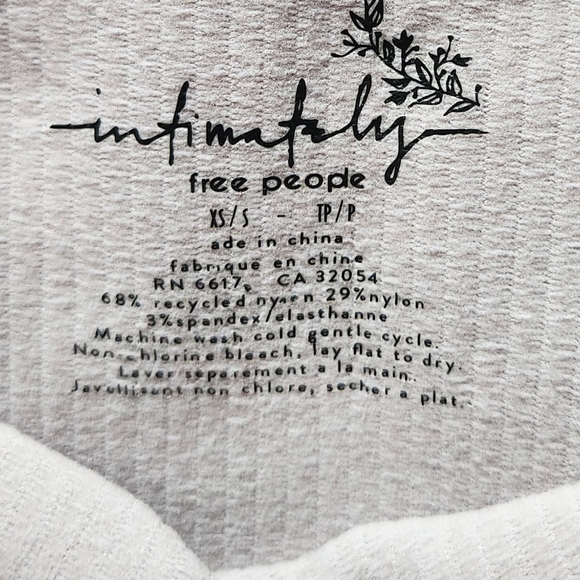 intimately
free people
XS/S - TP/P
ade in china
fabriqué en chine
RN 6617 CA 32054
68% recycled nylon 29%nylon
3%spandex/elasthanne
Machine wash cold gentle cycle.
Non-chlorine bleach, lay flat to dry.
Laver separement a la main.
Javellisant non chlore, secher a plat.